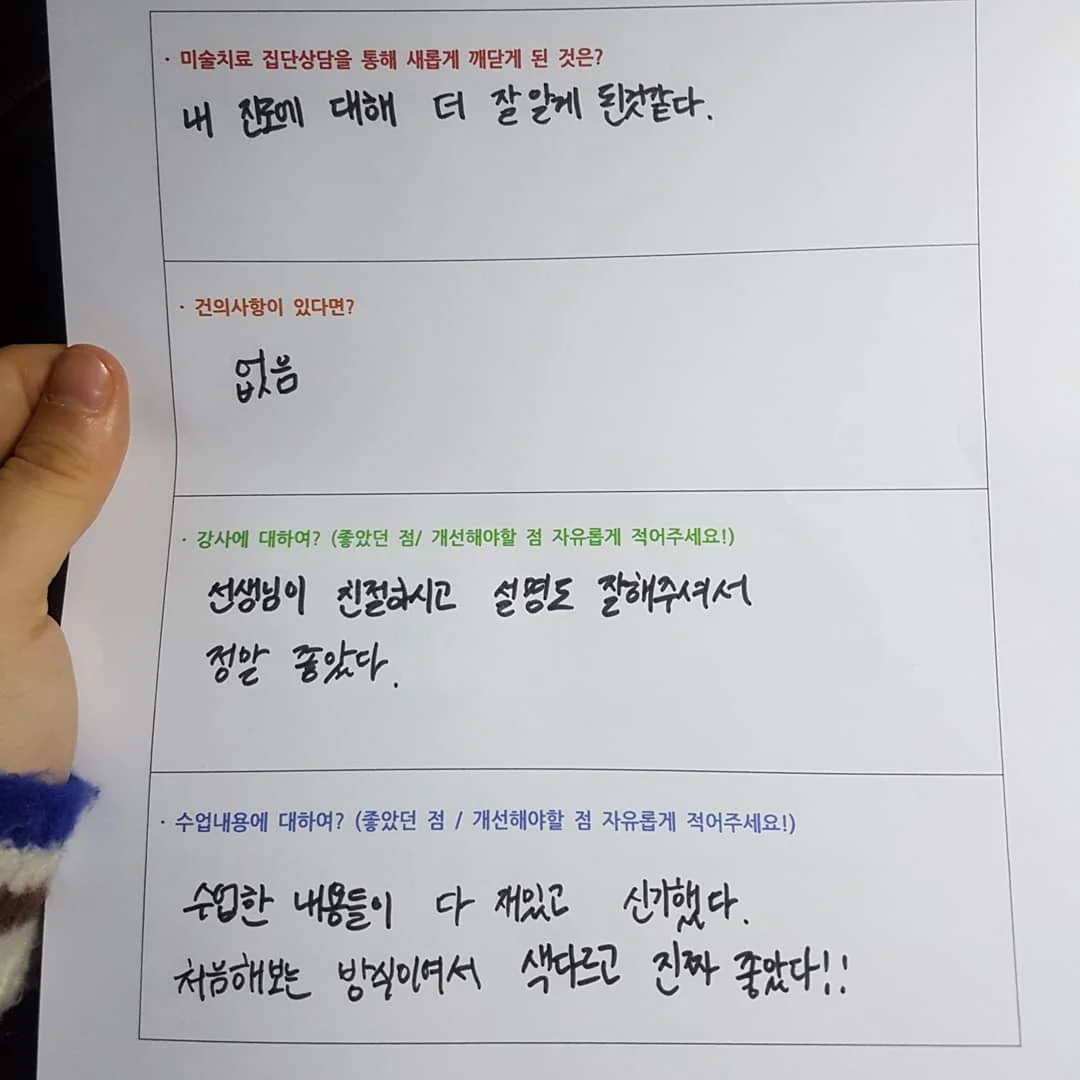 · 미술치료 집단상담을 통해 새롭게 깨닫게 된 것은?
내 진로에 대해 더 잘 알게 된것같다.
· 건의사항이 있다면?
없음
· 강사에 대하여? (좋았던 점/ 개선해야할 점 자유롭게 적어주세요!)
선생님이 친절하시고 설명도 잘해주셔서
정말 좋았다.
· 수업내용에 대하여? (좋았던 점 / 개선해야할 점 자유롭게 적어주세요!)
수업한 내용들이 다 재있고 신기했다.
처음해보는 방식이여서 색다르고 진짜 좋았다!!